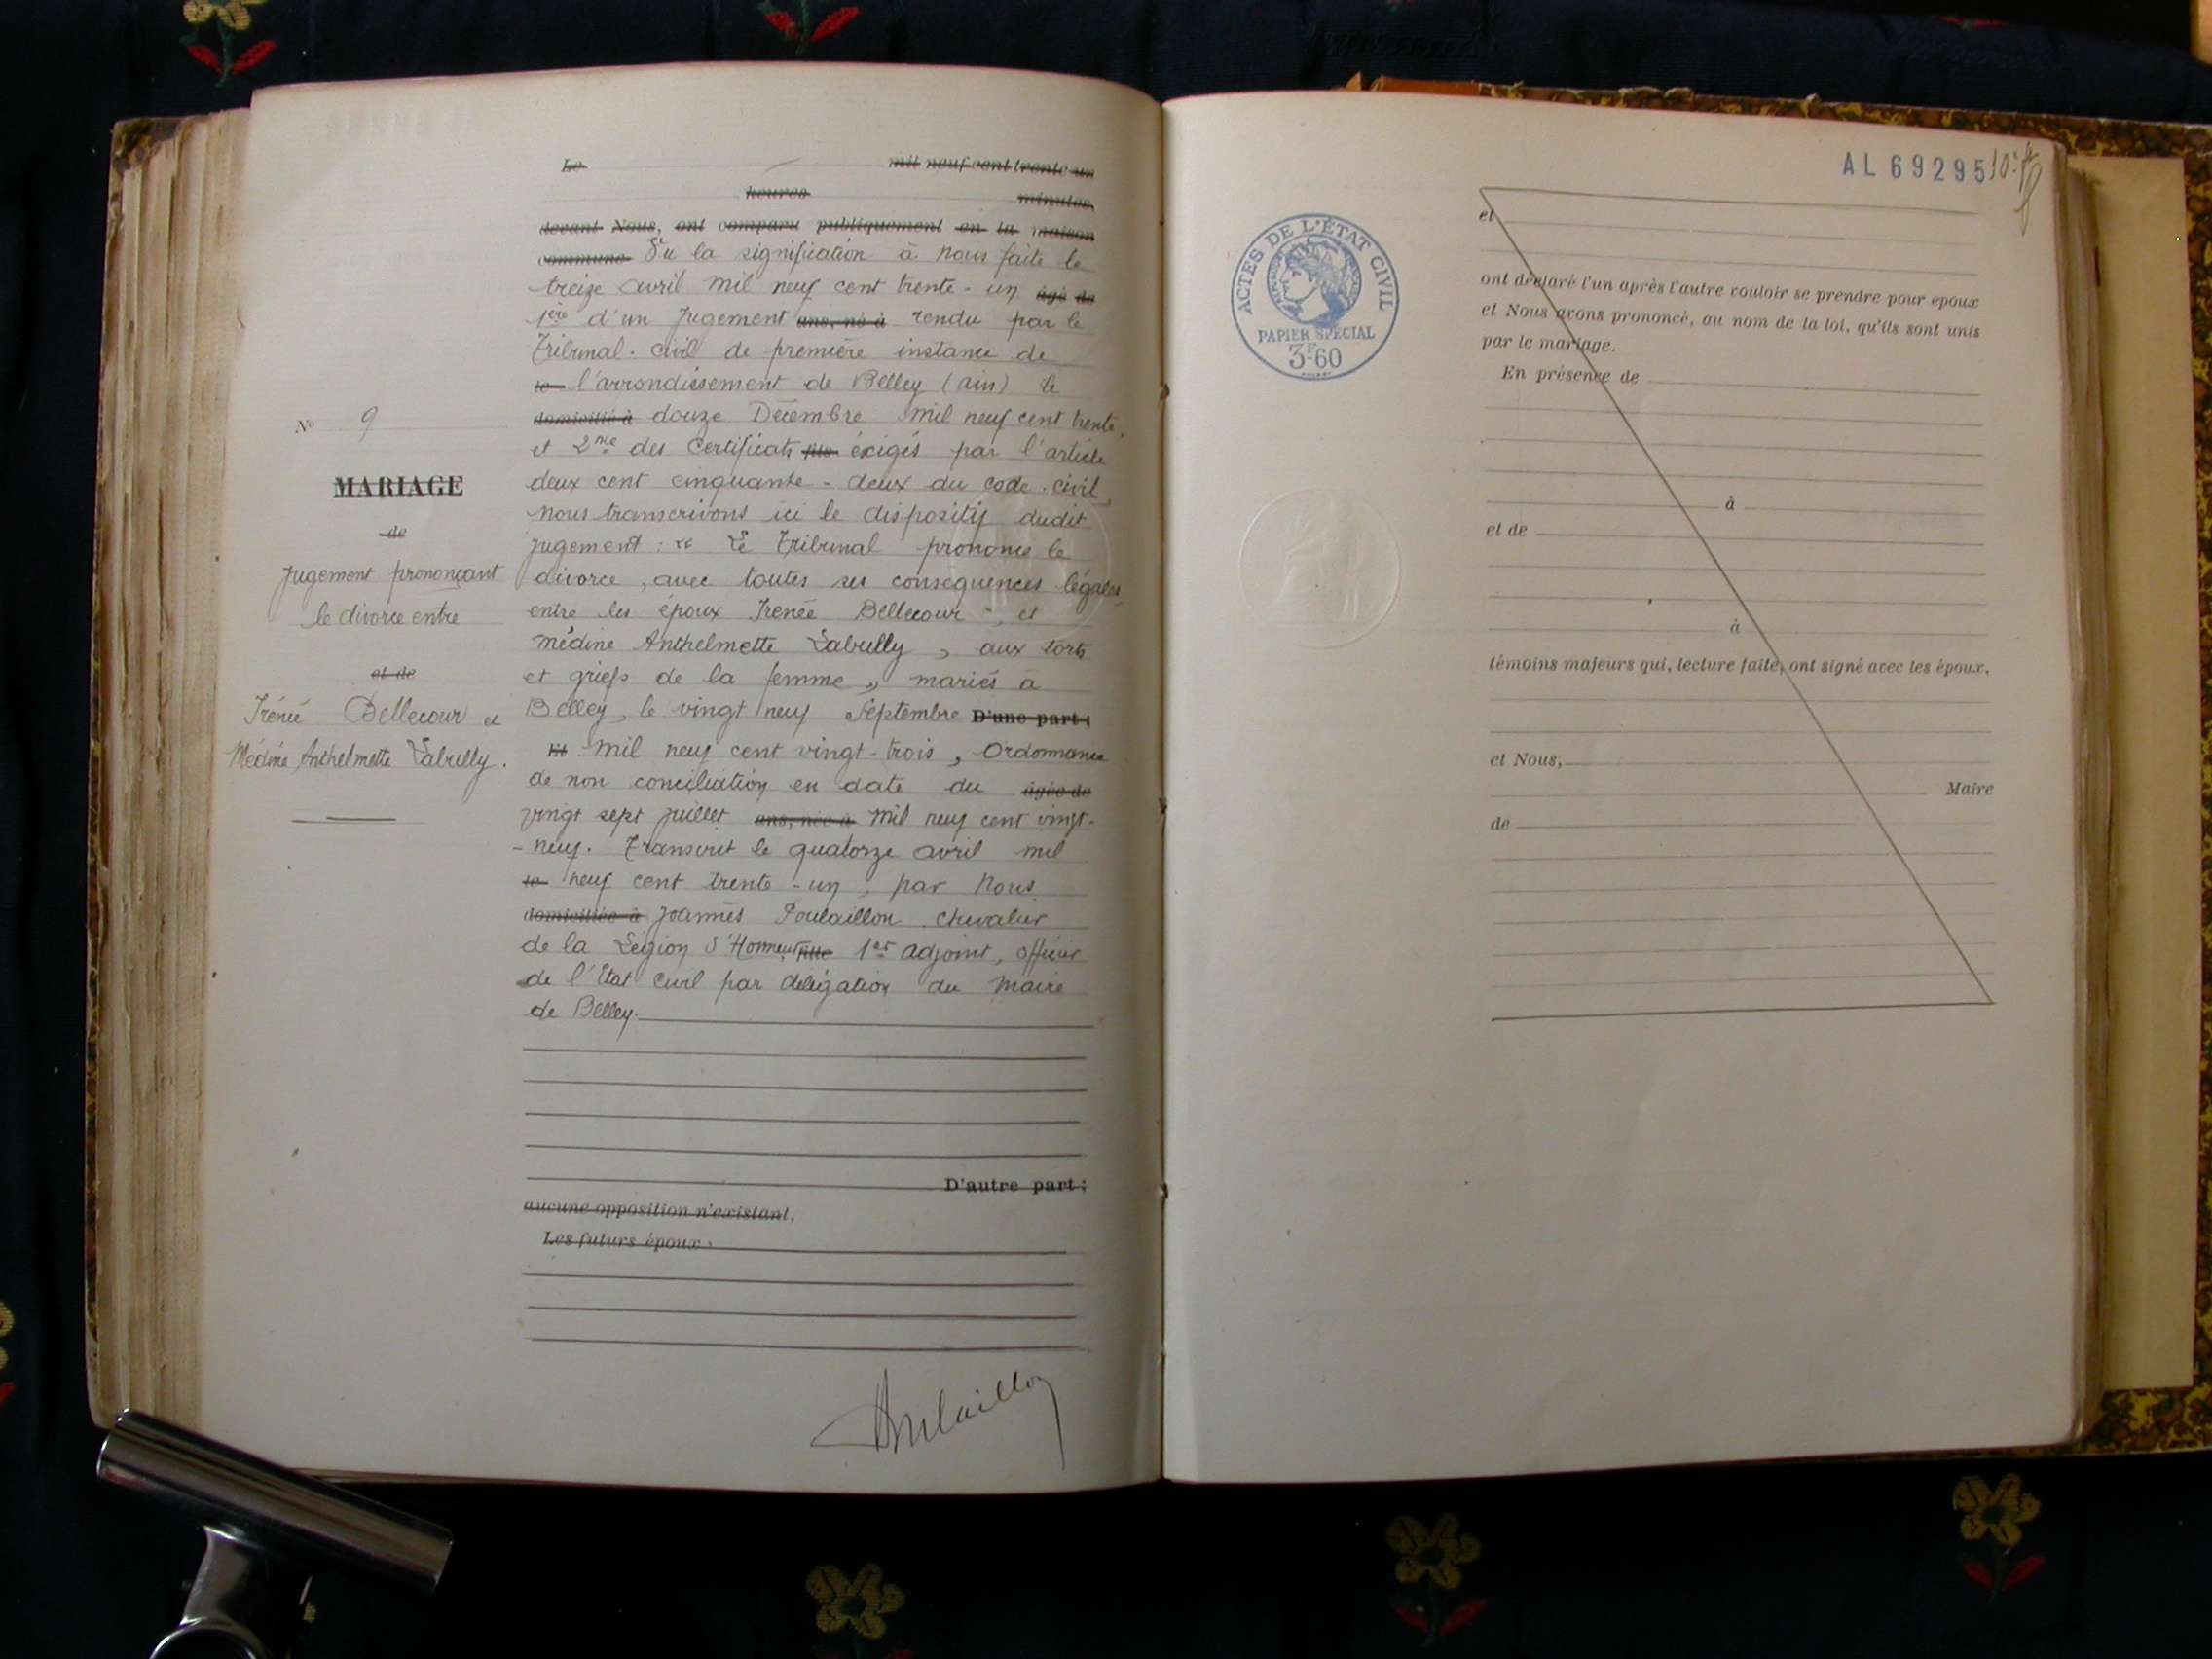 Le mil neuf cent trente un
heures minutes,
devant Nous, ont comparu publiquement en la maison
commune Vu la signification à nous faite le
treize avril mil neuf cent trente-un âgé de
1ère d'un jugement ans, né à rendu par le
Tribunal civil de première instance de
le l'arrondissement de Belley (ain) le
domicilié à douze Décembre mil neuf cent trente,
et 2me des Certificats fils éxigés par l'article
deux cent cinquante-deux du code civil,
nous transcrivons ici le dispositif dudit
jugement : « Le Tribunal prononce le
divorce, avec toutes ses conséquences légales,
entre les époux Irenée Bellecour, et
médine Anthelmette Labully, aux torts
et griefs de la femme », mariés à
Belley, le vingt neuf Septembre D'une part :
Et mil neuf cent vingt-trois, Ordonnance
de non conciliation en date du âgée de
vingt sept juillet ans, née à mil neuf cent vingt-
-neuf. Transcrit le quatorze avril mil
le neuf cent trente-un, par Nous
domiciliée à Joannès Poulaillon chevalier
de la Légion d'Honneur fille 1er adjoint, officier
de l'Etat civil par délégation du Maire
de Belley.
D'autre part :
aucune opposition n'existant,
Les futurs époux
Poulaillon
No 9
MARIAGE
de
Jugement prononçant
le divorce entre
et de
Irénée Bellecour et
Médine Anthelmette Labully.
AL 69295
ACTES DE L'ÉTAT CIVIL
PAPIER SPÉCIAL
3F.60
et
ont déclaré l'un après l'autre vouloir se prendre pour époux
et Nous avons prononcé, au nom de la loi, qu'ils sont unis
par le mariage.
En présence de
à
et de
à
témoins majeurs qui, lecture faite, ont signé avec les époux,
et Nous,
Maire
de